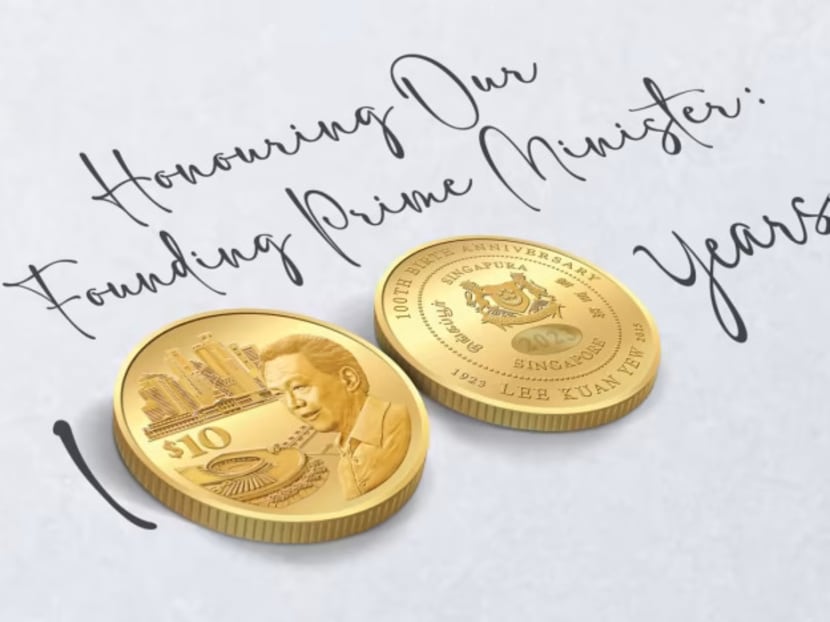 Honouring Our
Founding Prime Minister:
1
Years
100TH BIRTH ANNIVERSARY
SINGAPURA
新加坡
சிங்கப்பூர்
2023
SINGAPORE
1923 LEE KUAN YEW 2015
$10